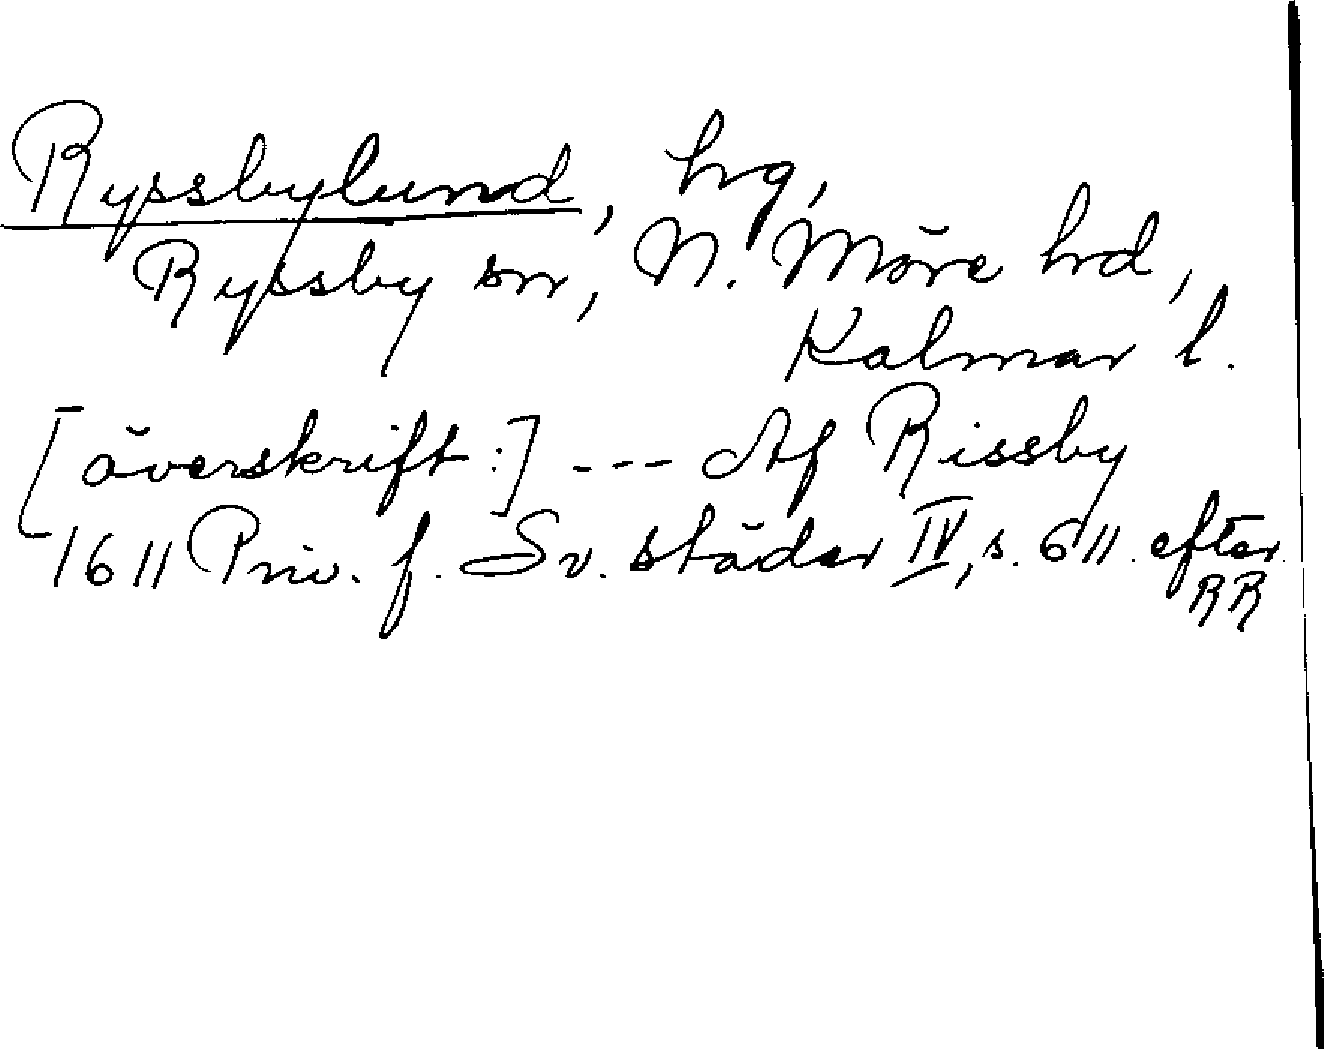 Ryssbylund, hg,
Ryssby sn, N. Möre hd,
Kalmar l.
[överskrift:] --- Af Rissby
1611 Priv. f. Sv. städer IV, s. 611. efter
RR